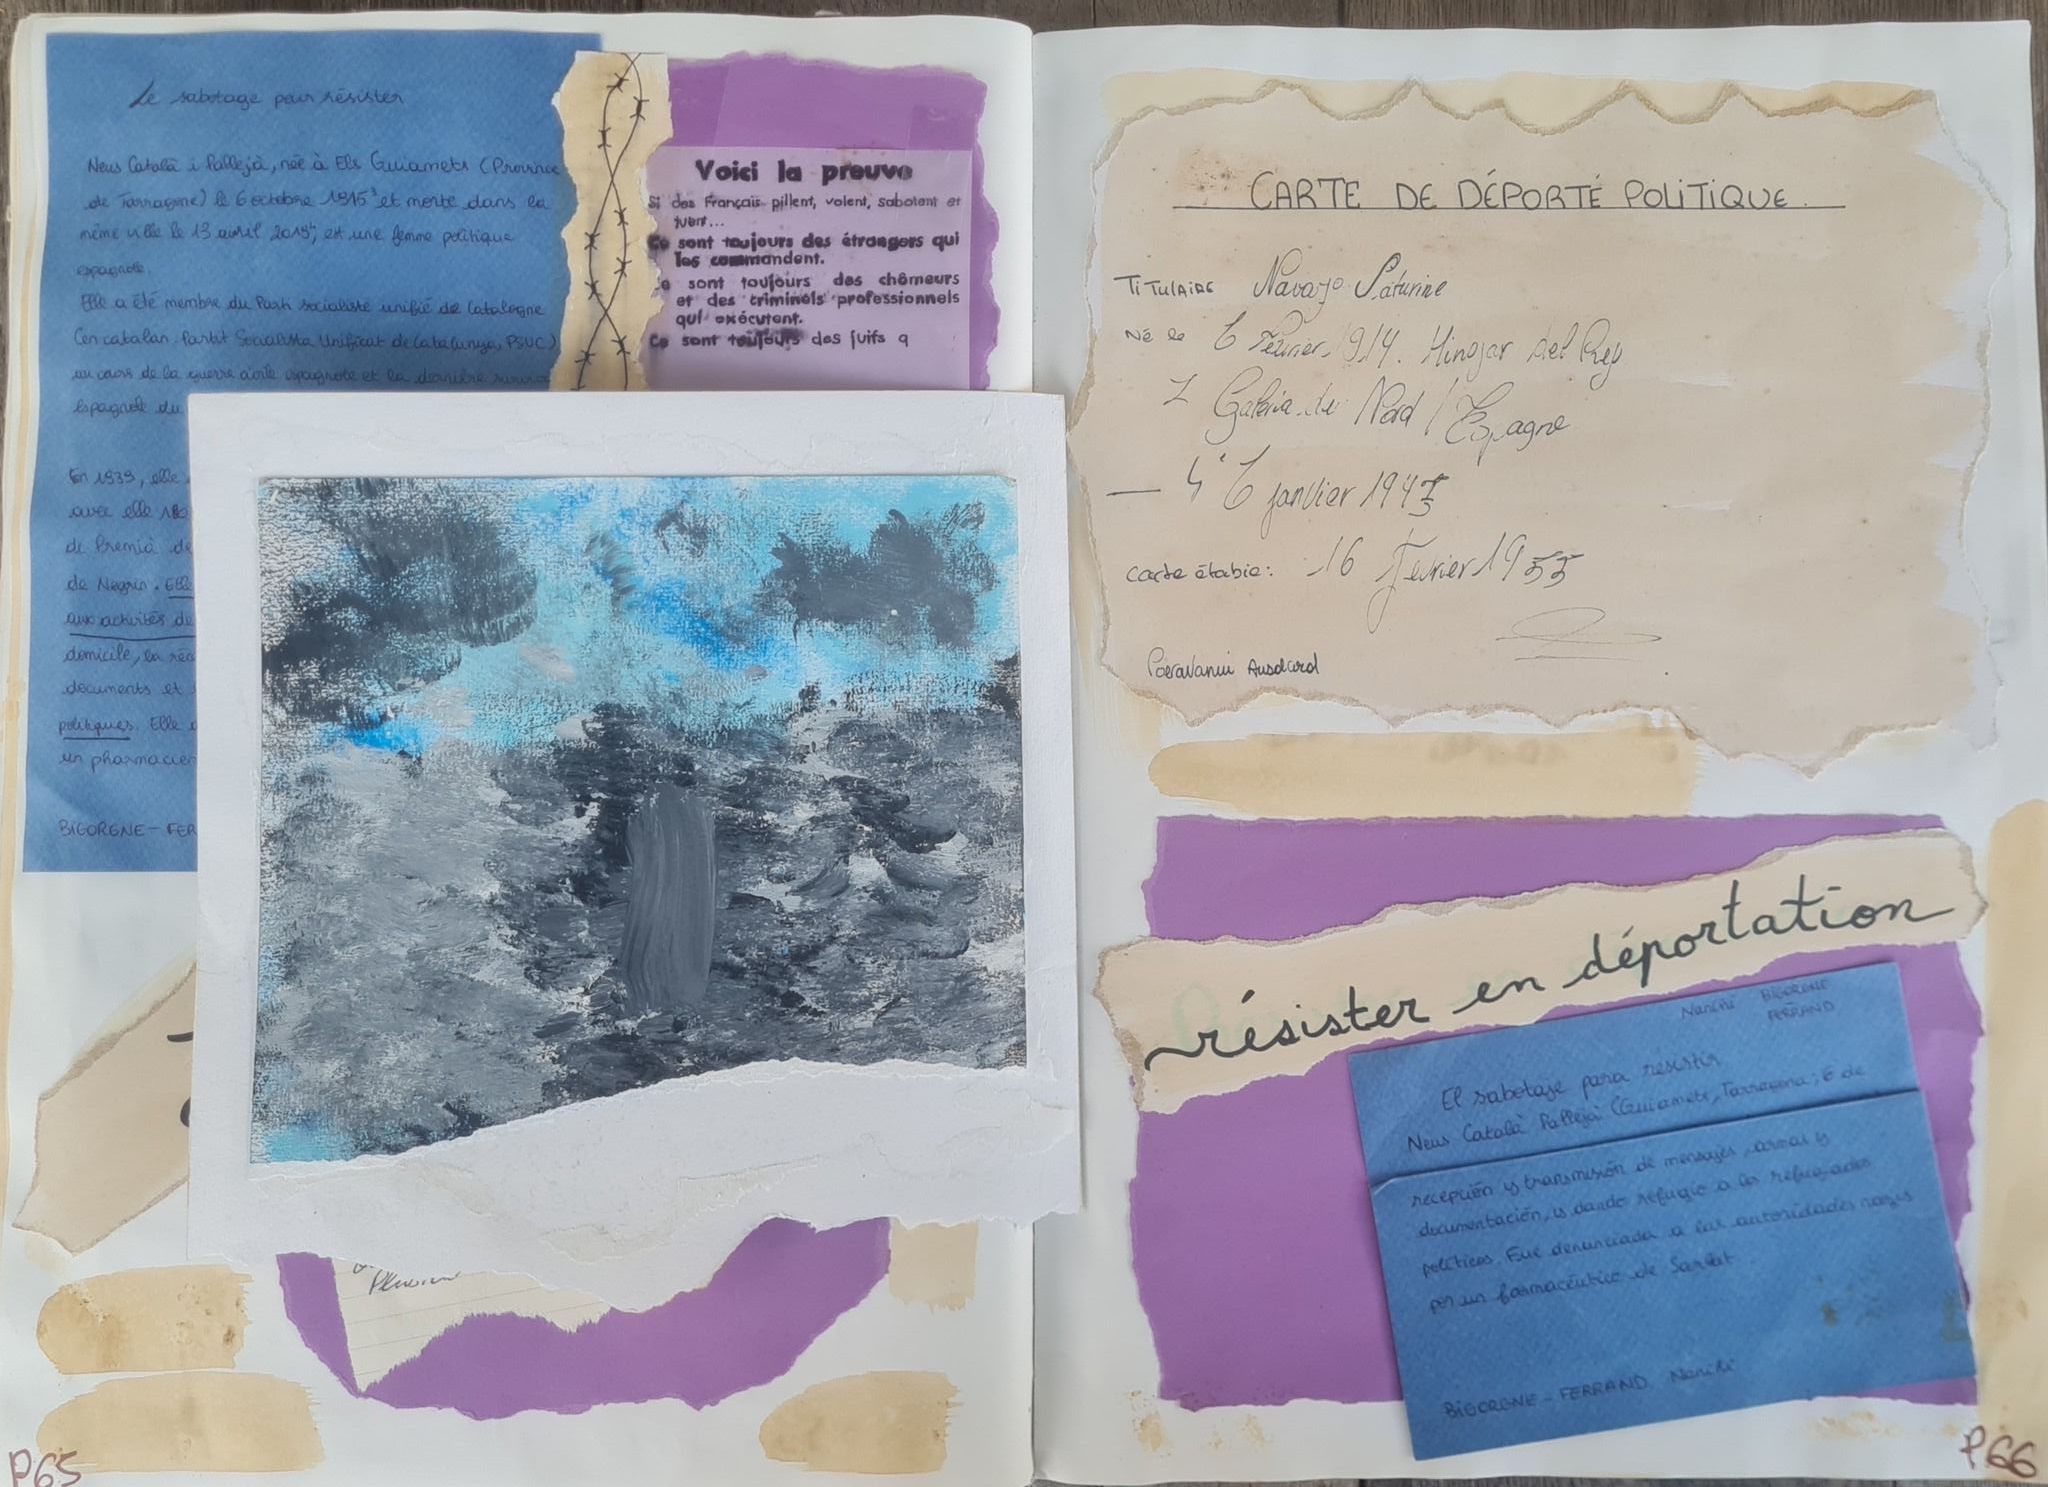 Le sabotage pour résister
Neus Català i Pallejà, née à Els Guiamets (Province
de Tarragone) le 6 octobre 1915³ et morte dans la
même ville le 13 avril 2019⁴, est une femme politique
espagnole.
Elle a été membre du Parti socialiste unifié de Catalogne
(en catalan: Partit Socialista Unificat de Catalunya, PSUC)
au cours de la guerre civile espagnole et la dernière
espagnole du
En 1939, elle
avec elle 180
de Premià de
de Negrin. Elle
aux activités de
domicile, la
documents et
politiques. Elle
un pharmacien
BIGORGNE - FER
Voici la preuve
Si des Français pillent, volent, sabotent et
tuent...
Ce sont toujours des étrangers qui
les commandent.
Ce sont toujours des chômeurs
et des criminels professionnels
qui exécutent.
Ce sont toujours des juifs q
P65
CARTE DE DÉPORTÉ POLITIQUE
TITULAIRE Navarjo Saturine
Né le 6 Février 1914. Hinojar del Rey
Nord / Espagne
6 janvier 194
carte établie: 16 Février 1955
résister en déportation
Nanihi BIGORGNE
FERRAND
El sabotaje para resistir
Neus Català Pallejà (Guiamets, Tarragona; 6 de
recepción y transmisión de mensajes, armas y
documentación, y dando refugio a los refugiados
políticos. Fue denunciada a las autoridades nazis
por un farmacéutico de Sarlat.
BIGORGNE - FERRAND Nanihi
P66